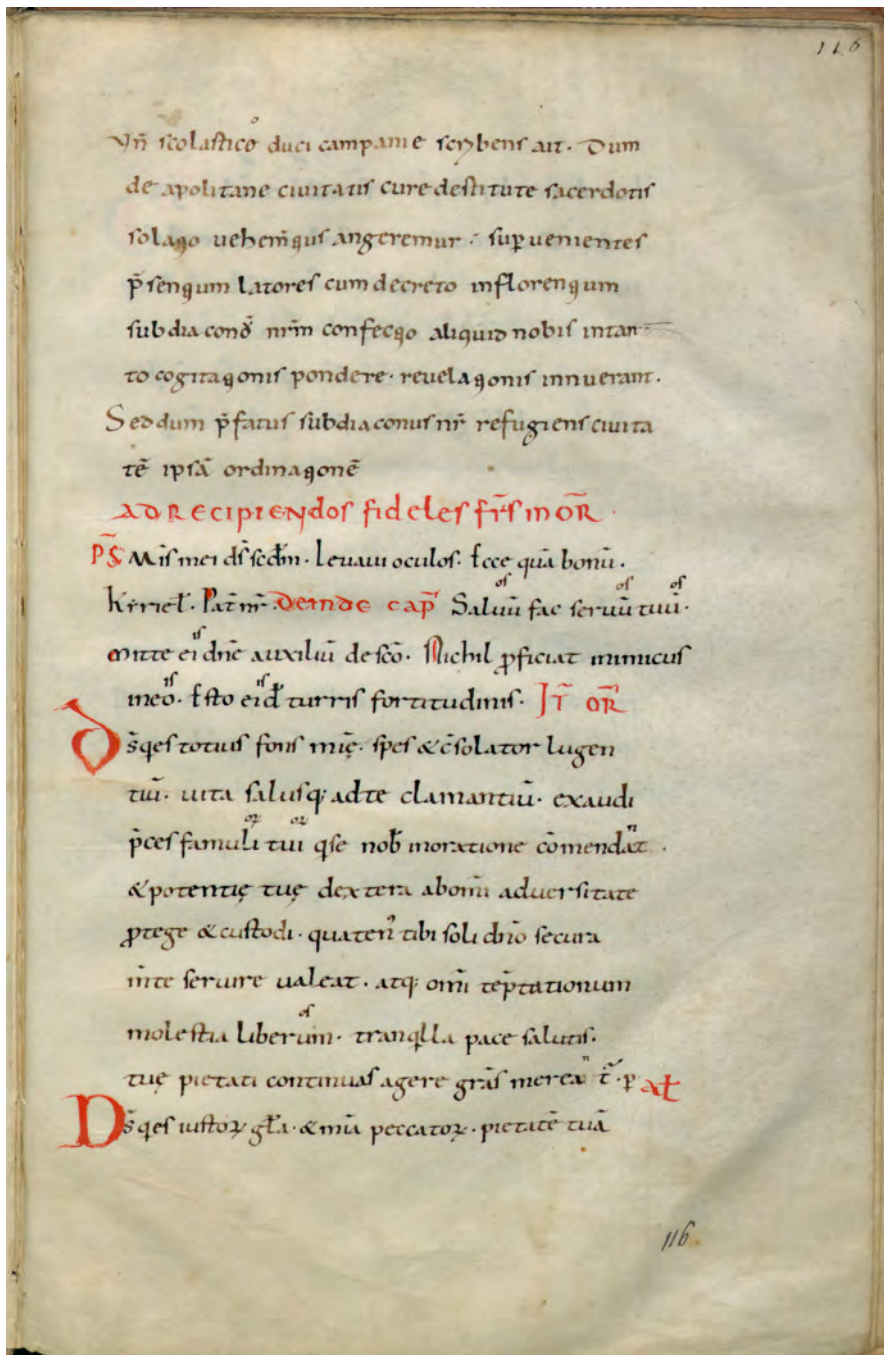 116
Vn̄ scolasticō duci campanie scrybens ait · Dum
de apolitane ciuitatis cure destitute sacerdotis
solatio uehem̄tius angeremur · sup̄uenientes
p̄sentium latores cum decreto inflorentium
subdiacon̄ nr̄m confectio aliquid nobis intan
to cogitationis pondere · reuelationis innuerant ·
Sed dum p̄fatus subdiaconus nr̄ refugiens ciuita
tē ipsā ordinationē
AD RECIPIENdos fideles fr̄s in oR̄ ·
PS̄ Mis̄ mei ds̄ scd̄m · Leuaui oculos · Ecce quā bonū ·
Kyriel̄ · Pat̄ nr̄ · deinde cap̄ Saluū fac seruū tuū ·
os os os
mitte ei dn̄e auxiliū de scō · Nichil p̄ficiat inimicus
is
in eo · Esto ei d̄ turris fortitudinis · IT̄ OR̄
is is
Ds̄ qes totius fons mīę · spes & c̄solator lugen
tiū · uita salusq; ad te clamantiū · exaudi
p̄ces famuli tui qse nob̄ in oratione cōmendat̄ ·
oꝝ oꝝ n
& potentię tuę dextera ab om̄i aduersitate
ꝓtege & custodi · quaten̄ tibi soli dn̄o secura
m̄te seruire ualeat · atq; om̄i tēptationum
molestia liberum · tranq̄lla pace salutis ·
os
tuę pietati continuas agere grās mereat̄ · p̄ AL̄
n
Ds̄ qes iustoꝝ gl̄a · & mīa peccatoꝝ · pietatē tuā
116